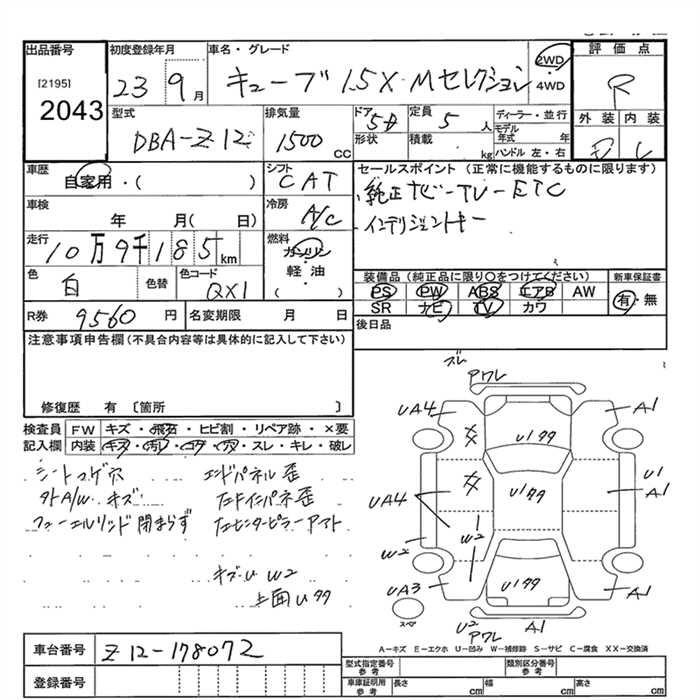 出品番号
[2195]
2043
初度登録年月
23 9月
車名・グレード
キューブ 1.5X Mセレクション
2WD
・
4WD
評価点
R
外装 内装
D C
型式
DBA-Z12
排気量
1500 cc
ドア 5D
形状
定員 5 人
積載 kg
ディーラー・並行
モデル年式 年
ハンドル 左・右
車歴
自家用・( )
シフト
CAT
車検
年 月( 日)
冷房
A/C
走行
10万9千185km
燃料
ガソリン
軽・油
( )
色
白
色替
色コード
QX1
R券 9560 円
名変期限 月 日
セールスポイント (正常に機能するものに限ります)
・純正ナビ-TV-ETC
・インテリジェントキー
装備品 (純正品に限り○をつけてください)
新車保証書
PS PW ABS エアB AW
SR ナビ TV カワ
有・無
後日品
注意事項申告欄(不具合内容等は具体的に記入して下さい)
修復歴 有〔箇所 〕
検査員記入欄
FW キズ・飛石・ヒビ割・リペア跡・×要
内装 キズ・汚レ・コゲ・穴・スレ・キレ・破レ
シートコゲ穴
外A/W キズ
フューエルリッド閉まらず
エンドパネル歪
キズU W2
上面U99
ズレ
アワレ
UA4
A1
U199
XX
U199
XX
U1
A1
UA4
W2
W2
UA3
U199
A1
スペア
U2
アワレ
A1
A-キズ E-エクボ U-凹み W-補修跡 S-サビ C-腐食 XX-交換済
車台番号 Z12-178072
登録番号
型式指定番号
参考
類別区分番号
参考
車庫証明用
参考
長さ cm 幅 cm 高さ cm